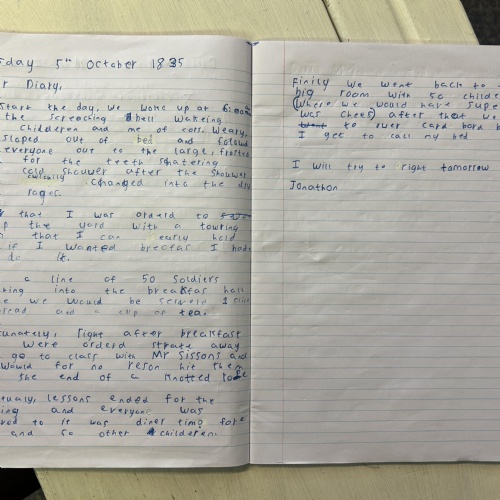 sday 5th October 1835
r Diary,
Start the day, we woke up at 6:00am
the screaching bell wakeing
Childeren and me of cors. Weary,
sloped out of bed and folowd
everyone out to the large, frosted
for the teeth shattering
cold shouwer after the shouwer
changed into the
rages.
that I was orderd to
the yard with a towring
that I can early hold
if I wanted brecfas I had
do it.
a line of 50 Soldiers
king into the breakfas hall
we would be serveld 1 slice
bread and a cup of tea.
unately, right after breakfast
were orderd strate away
go to class with Mr Sissons and
would for no reson hit them
the end of a knotted rope
tualy, lessons ended for the
ing and everyone was
to it was diner time for
and 50 other children.
Finily we went back to
big room with 50 childe
(Where we would have supe
was chees) after that we
to ouer card bord
I get to call my bed
I will try to right tomorrow
Jonathon